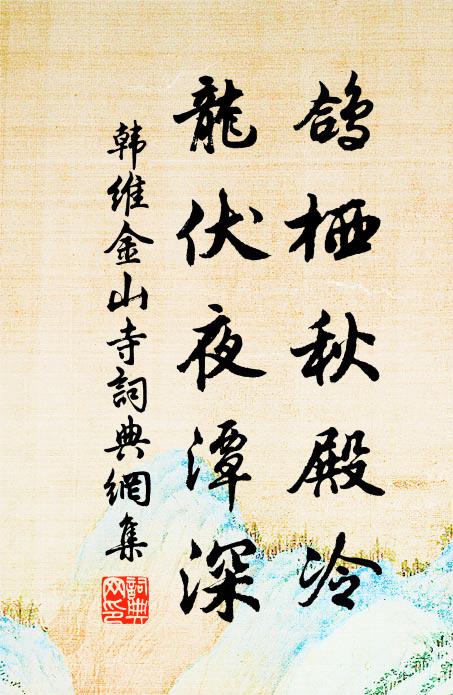 鴿栖秋殿冷
龍伏夜潭深
韩維金山寺詞典網集